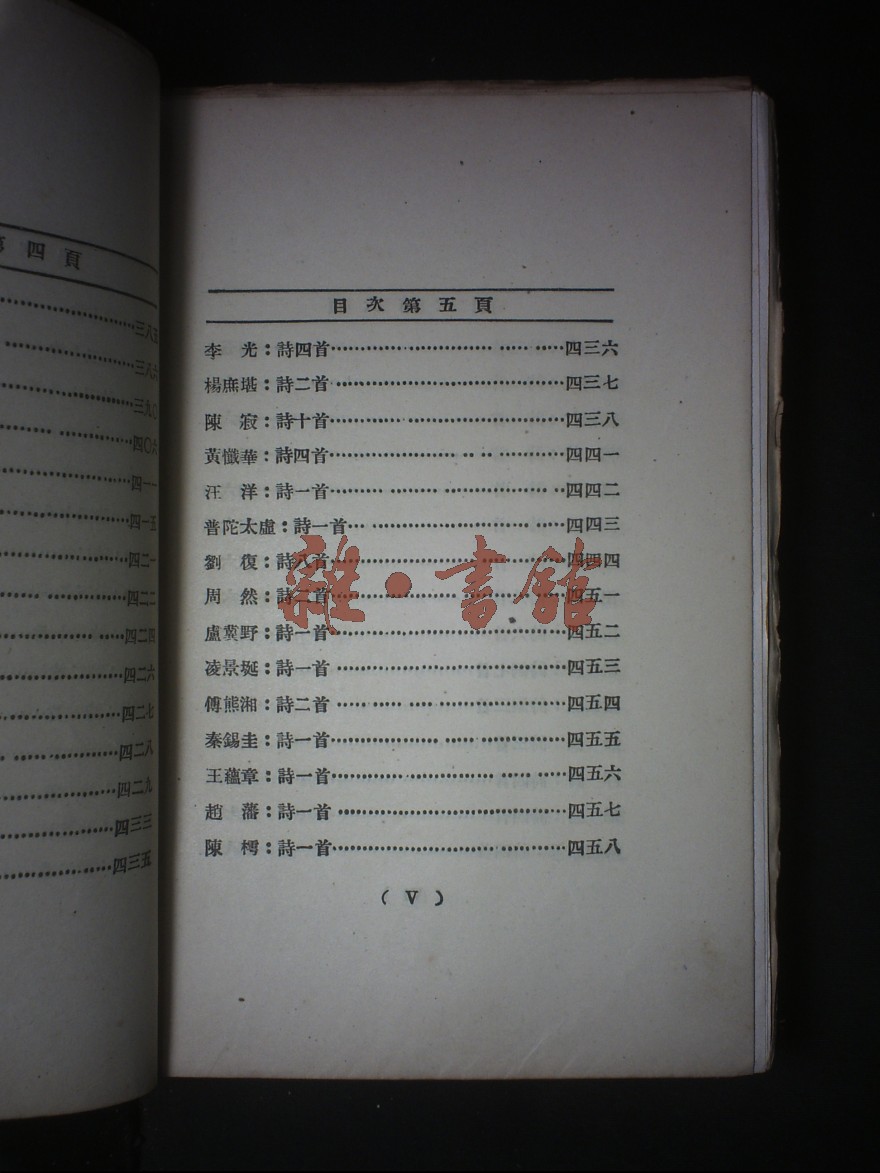 第四頁
三八五
三八六
三九〇
四〇六
四一一
四一五
四二一
四二二
四二四
四二六
四二七
四二八
四二九
四三三
四三五
目次第五頁
李　光：詩四首…………四三六
楊庶堪：詩二首…………四三七
陳　寂：詩十首…………四三八
黃懺華：詩四首…………四四一
汪　洋：詩一首…………四四二
普陀太虛：詩一首…………四四三
劉　復：詩八首…………四四四
周　然：詩二首…………四五一
盧冀野：詩一首…………四五二
凌景埏：詩一首…………四五三
傅熊湘：詩二首…………四五四
秦錫圭：詩一首…………四五五
王蘊章：詩一首…………四五六
趙　藩：詩一首…………四五七
陳　樗：詩一首…………四五八
（V）
雜·書館